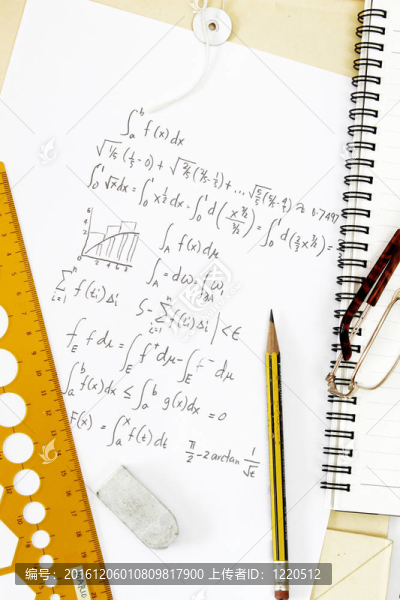 ∫_a^b f(x)dx
√(1/5) (1/5 - 0) + √(2/5) (2/5 - 1/5) + ... √(5/5) (5/5 - 4/5) ≈ 0.7497
∫_0^1 √x dx = ∫_0^1 x^(1/2) dx - ∫_0^1 d(x^(3/2) / 3/2) = ∫_0^1 d(2/3 x^(3/2)) =
6
4
2
2 4 6 8
∫_A f(x)dμ
∫_A = dω = ∫_∂M ω
∑_{i=1}^n f(ti)Δi
S - ∑_{i=1} f(ti)Δi | < ε
∫_E f dμ = ∫_E f^+ dμ - ∫_E f^- dμ
∫_a^b f(x)dx ≤ ∫_a^b g(x)dx = 0
F(x) = ∫_a^x f(t)dt
π/2 - 2arctan 1/√t
编号：20161206010809817900 上传者ID：1220512